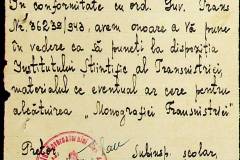 In conformitate cu ord. Guv. Trans
Nr. 36232/943, avem onoare a Vă pune
în vedere ca să puneți la dispoziția
Institutului Științific al Transnistriei,
materialul ce eventual ar cere pentru
alcătuirea „Monografiei Transnistriei"
Pretor
Subinsp. școlar,